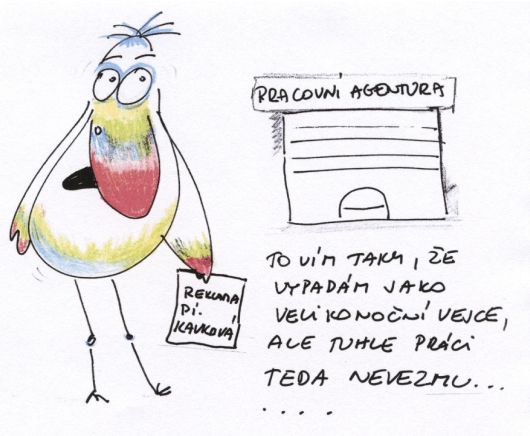 PRACOVNÍ AGENTURA
REKLAMA
PÍ.
KAVKOVÁ
TO VÍM TAKY, ŽE
VYPADÁM JAKO
VELIKONOČNÍ VEJCE,
ALE TUHLE PRÁCI
TEDA NEVEZMU...
.....